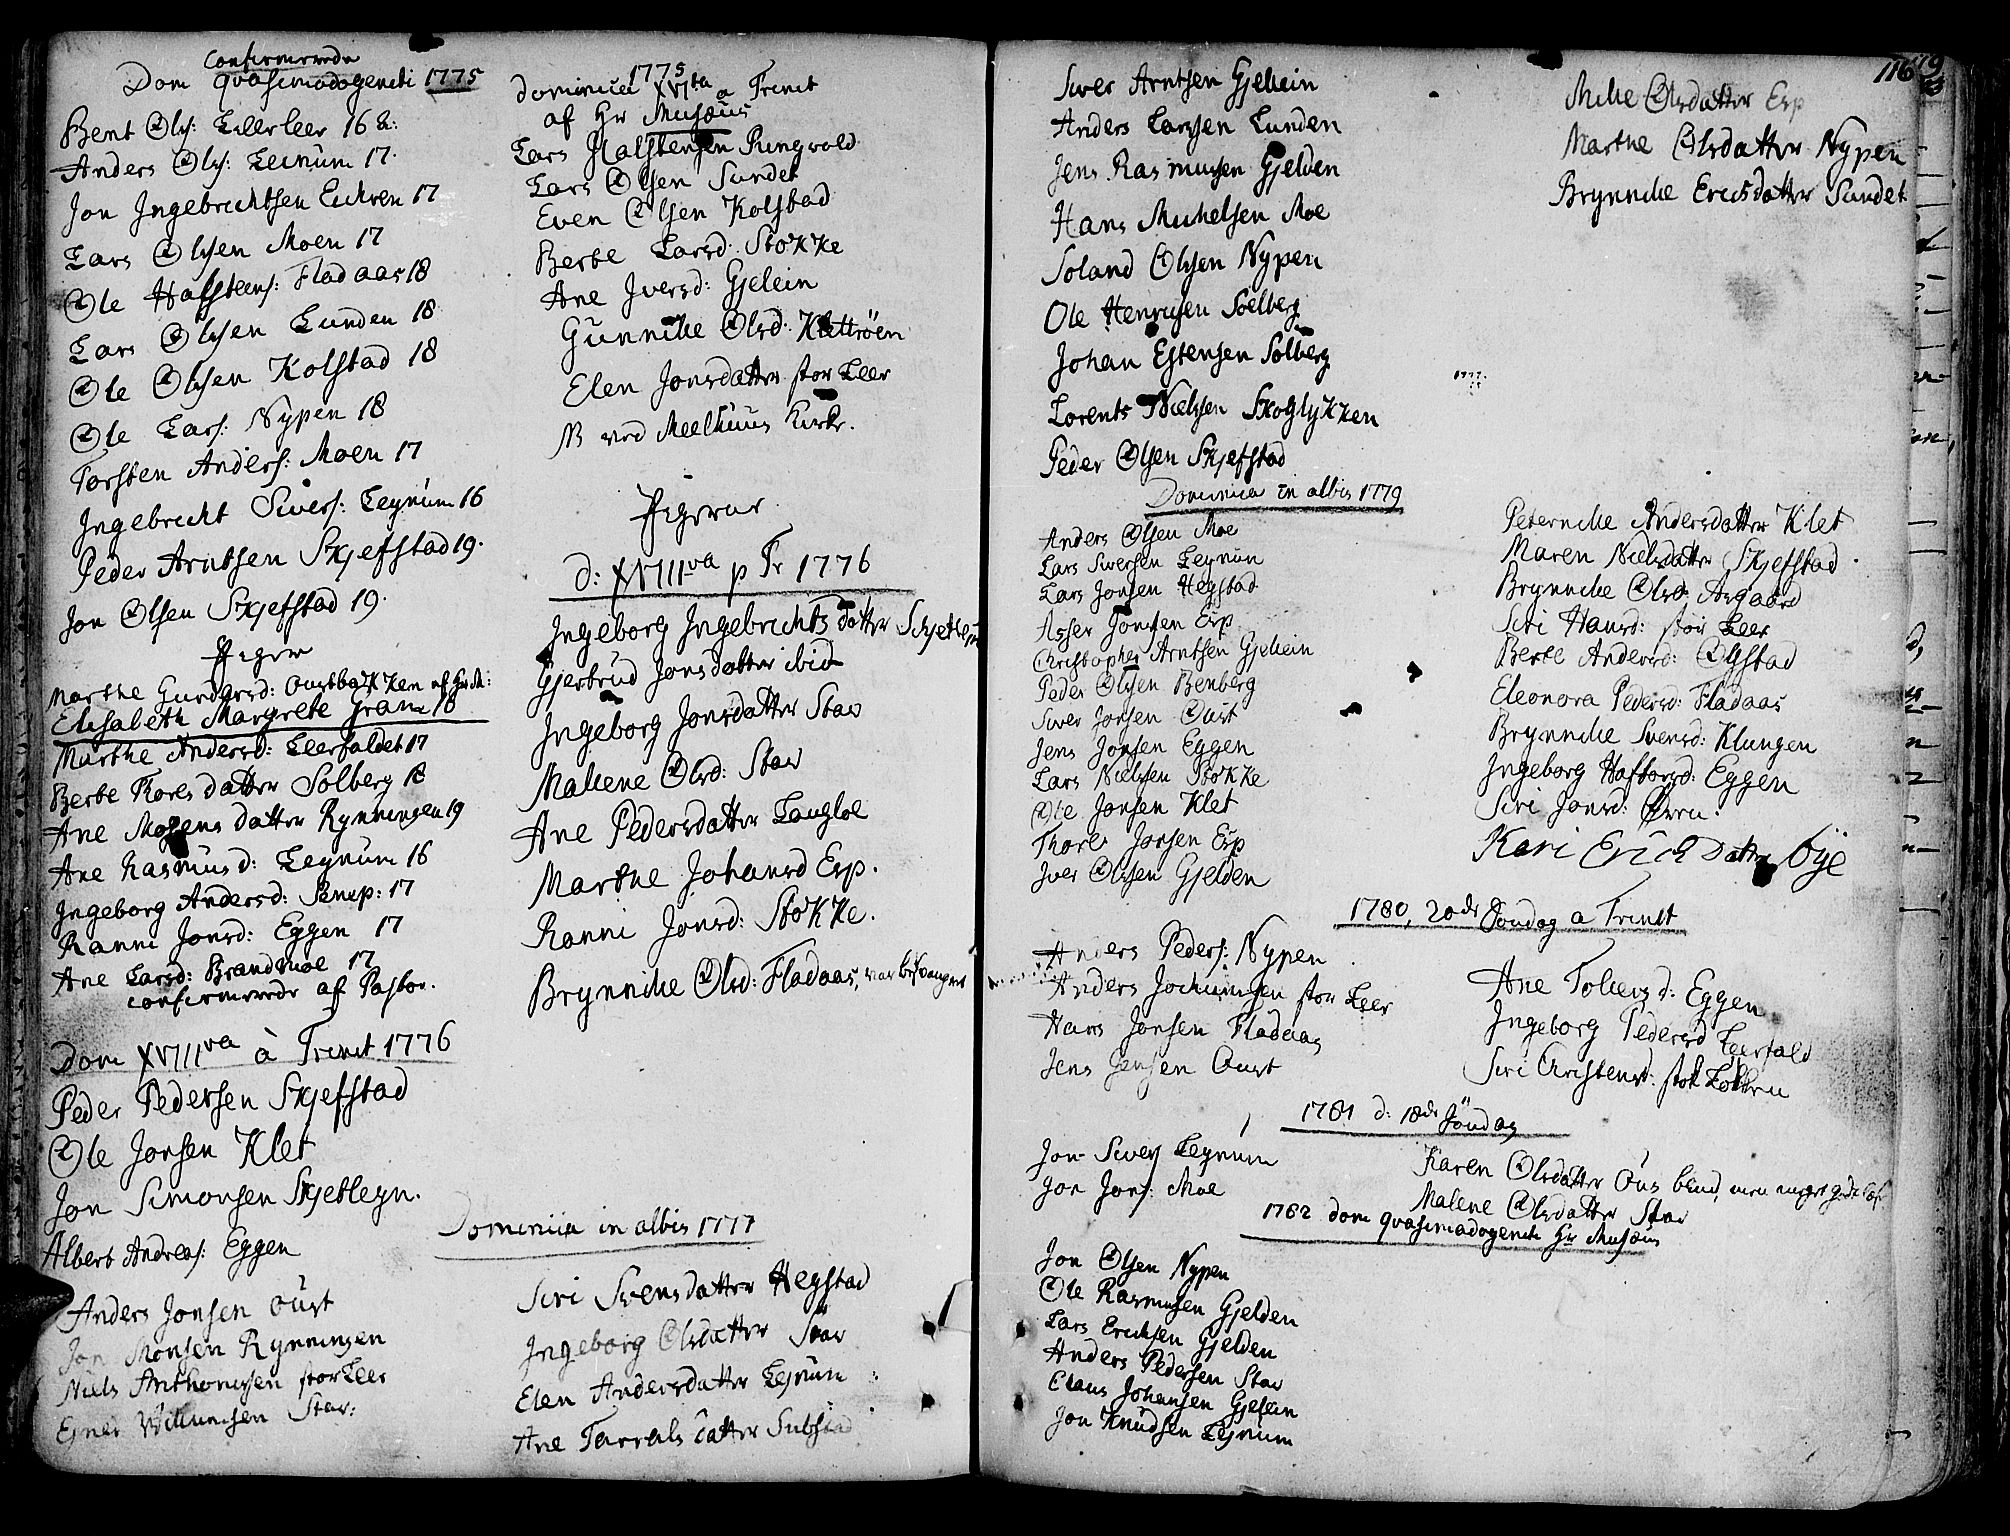 Confirmerede
Dom quasimodogeniti 1775
Bent Ols: Leerleer 16 &:
Anders Ols: Leinum 17.
Jon Ingebrichtsen Eichren 17
Lars Olsen Moen 17
Ole Halsteens: Fladaas 18
Lars Olsen Lunden 18
Ole Olsen Kolstad 18
Ole Lars: Nypen 18
Torsten Anders: Moen 17
Ingebrecht Sivers: Legnum 16
Peder Arntsen Skjefstad 19.
Jon Olsen Skjefstad 19.
Piger
Marthe Gundersd: Oustbakken af Hr M:
Elisabeth Margrete Gram 18
Marthe Andersd: Leerfaldet 17
Berte Toresdatter Solberg 18
Ane Mogensdatter Rynningen 19
Ane Rasmusd: Legnum 16
Ingeborg Andersd: Senep: 17
Ranni Jonsd: Eggen 17
Ane Larsd: Brandmoe 17
confirmerede af Pastor.
Dom XVIII va à Trinit 1776
Peder Pedersen Skjefstad
Ole Jonsen Klet
Jon Simonsen Skjetlegn.
Albert Andreas: Eggen
1775
Dominica XVI ta a Trinit
af Hr Musæus
Lars Halstensen Ringvold
Lars Olsen Sundet
Even Olsen Kolstad
Berte Larsd: Stokke
Ane Iversd: Gjelein
Gunniche Olsd: Klettröen
Elen Jonsdatter stor Leer
NB ved Meelhuus Kirke.
Pigerne
D: XVIII va p Tr 1776
Ingeborg Ingebrichtsdatter Schjetlein
Gjertrud Jonsdatter ibid
Ingeborg Jonsdatter Stav
Malene Olsd: Stav
Ane Pedersdatter Langloe
Marthe Johansd Esp.
Ranni Jonsd: Stokke.
Brynniche Olsd: Fladaas, var besvangret
Dominica in albis 1777
Anders Jonsen Oust
Jon Monsen Rynningen
Niels Anthonisen stor Leer
Ejner Villumsen Stav:
Siri Svensdatter Hegstad
Ingeborg Olsdatter Stav
Elen Andersdatter Legnum
Ane Tarralsdatter Substad
116
Siver Arntsen Gjelein
Anders Larsen Lunden
Jens Rasmusen Gjelden
Hans Michelsen Moe
Soland Olsen Nypen
Ole Henrichsen Soelberg
Johan Estensen Solberg
Lorents Nielsen Skoglykken
Peder Olsen Skjefstad
Olsdatter Esp
Marthe Olsdatter Nypen
Brynniche Ericsdatter Sundet
1777.
Dominica in albis 1779
Anders Olsen Moe
Lars Siversen Legnum
Lars Jonsen Hegstad
Asser Jonsen Esp
Christopher Arntsen Gjelein
Peder Olsen Benberg
Siver Jonsen Oust
Jens Jonsen Eggen
Lars Nielsen Stokke
Ole Jonsen Klet
Thore Jonsen Esp
Iver Olsen Gjelden
Peterniche Andersdatter Klet
Maren Nielsdatter Skjefstad.
Brynniche Olsd: Aagaard
Siri Hansd: stor Leer
Berte Andersd: Olstad
Eleonora Pedersd: Fladaas
Brynniche Svensd: Klungen
Ingeborg Haftorsd: Eggen
Siri Jonsd: Øvren.
Kari Erich Datter bye
1780, 20de Söndag a Trinit
Anders Peders: Nypen
Anders Jochumsen stor Leer
Hans Jonsen Fladaas
Jens Jensen Oust
Ane Tollevsd: Eggen
Ingeborg Pedersd Leerfald
Siri Christensd: stor Løkken
1781 d: 18de Söndag
Jon Sivers Legnum
Jon Jons: Moe
Karen Olsdatter Ous blind, men meget
Malene Olsdatter Stav
1782 dom quasimodogeniti Hr Musæus
Jon Olsen Nypen
Ole Rasmusen Gjelden
Lars Erichsen Gjelden
Anders Pedersen Stav
Claus Johansen Gjelein
Jon Knudsen Legnum